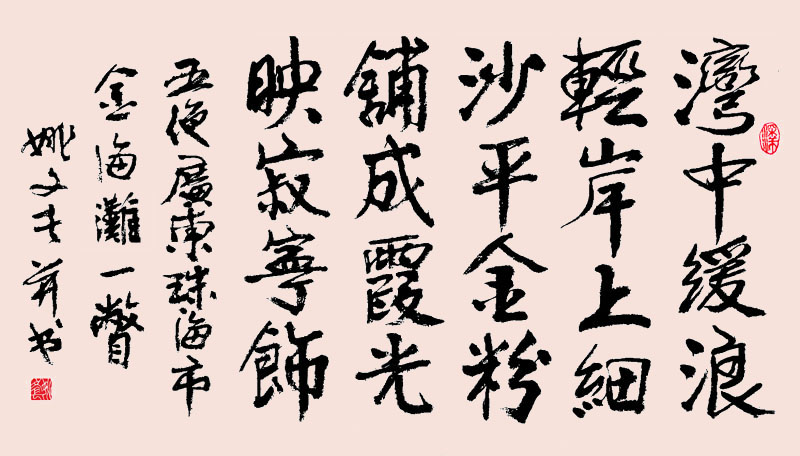 灣中緩浪
輕岸上細
沙平金粉
舖成霞光
映寂寧飾
五絕廣東珠海市
金海灘一瞥
姚文長并书